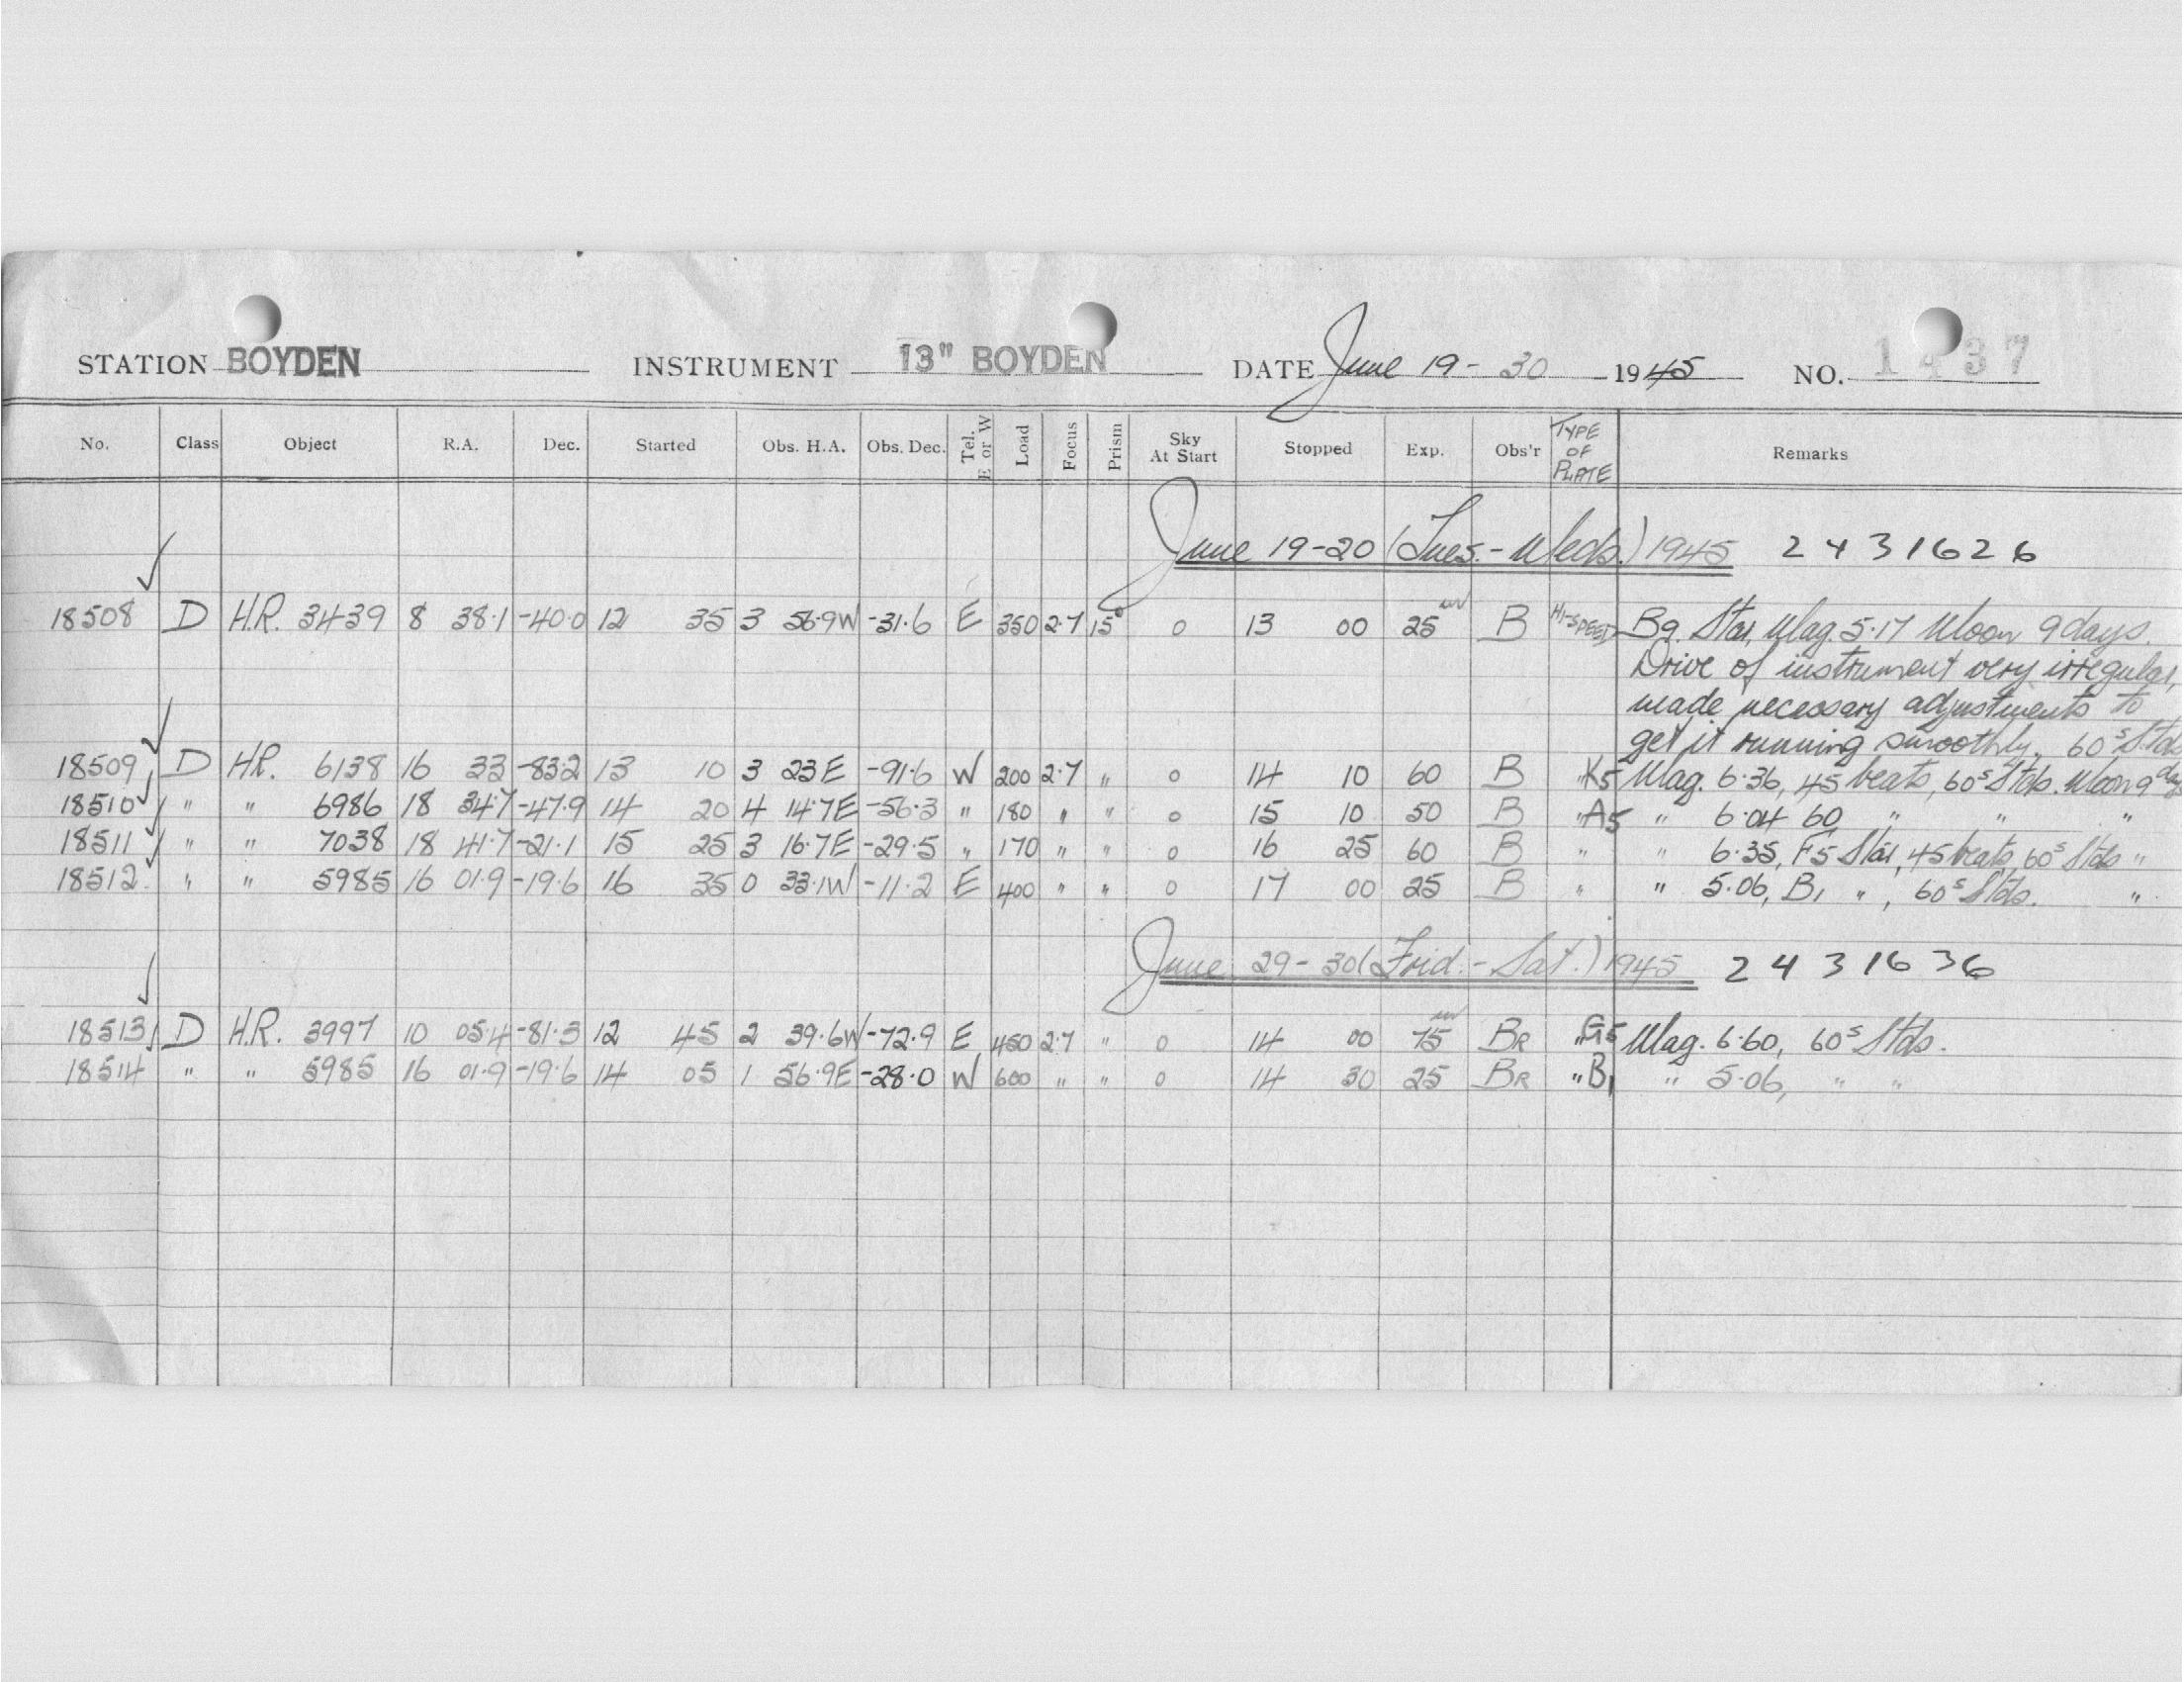 STATION BOYDEN INSTRUMENT 13" BOYDEN DATE June 19 - 30 1945 NO. 1437
No. Class Object R.A. Dec. Started Obs. H.A. Obs. Dec. Tel. E or W Load Focus Prism Sky At Start Stopped Exp. Obs'r TYPE OF PLATE Remarks
June 19-20 (Tues.-Weds.) 1945 2431626
18508 D H.R. 3439 8 38.1 -40.0 12 35 3 56.9W -31.6 E 350 2.7 15° 0 13 00 25 m B HI-SPEED B9 Star, Mag. 5.17 Moon 9 days.
Drive of instrument very irregular,
made necessary adjustments to
get it running smoothly. 60s Stds
18509 D H.R. 6138 16 33 -83.2 13 10 3 23E -91.6 W 200 2.7 " 0 14 10 60 B " K5 Mag. 6.36, 45 beats, 60s Stds. Moon 9 days
18510 " " 6986 18 34.7 -47.9 14 20 4 14.7E -56.3 " 180 " " 0 15 10 50 B " A5 " 6.04 60 " " "
18511 " " 7038 18 41.7 -21.1 15 25 3 16.7E -29.5 " 170 " " 0 16 25 60 B " " 6.35, F5 Star, 45 beats, 60s Stds "
18512 " " 5985 16 01.9 -19.6 16 35 0 33.1W -11.2 E 400 " " 0 17 00 25 B " " 5.06, B1 " , 60s Stds. "
June 29-30 (Frid.-Sat.) 1945 2431636
18513 D H.R. 3997 10 05.4 -81.3 12 45 2 39.6W -72.9 E 450 2.7 " 0 14 00 75 m BR " G5 Mag. 6.60, 60s Stds.
18514 " " 5985 16 01.9 -19.6 14 05 1 56.9E -28.0 W 600 " " 0 14 30 25 BR " B1 " 5.06, " "